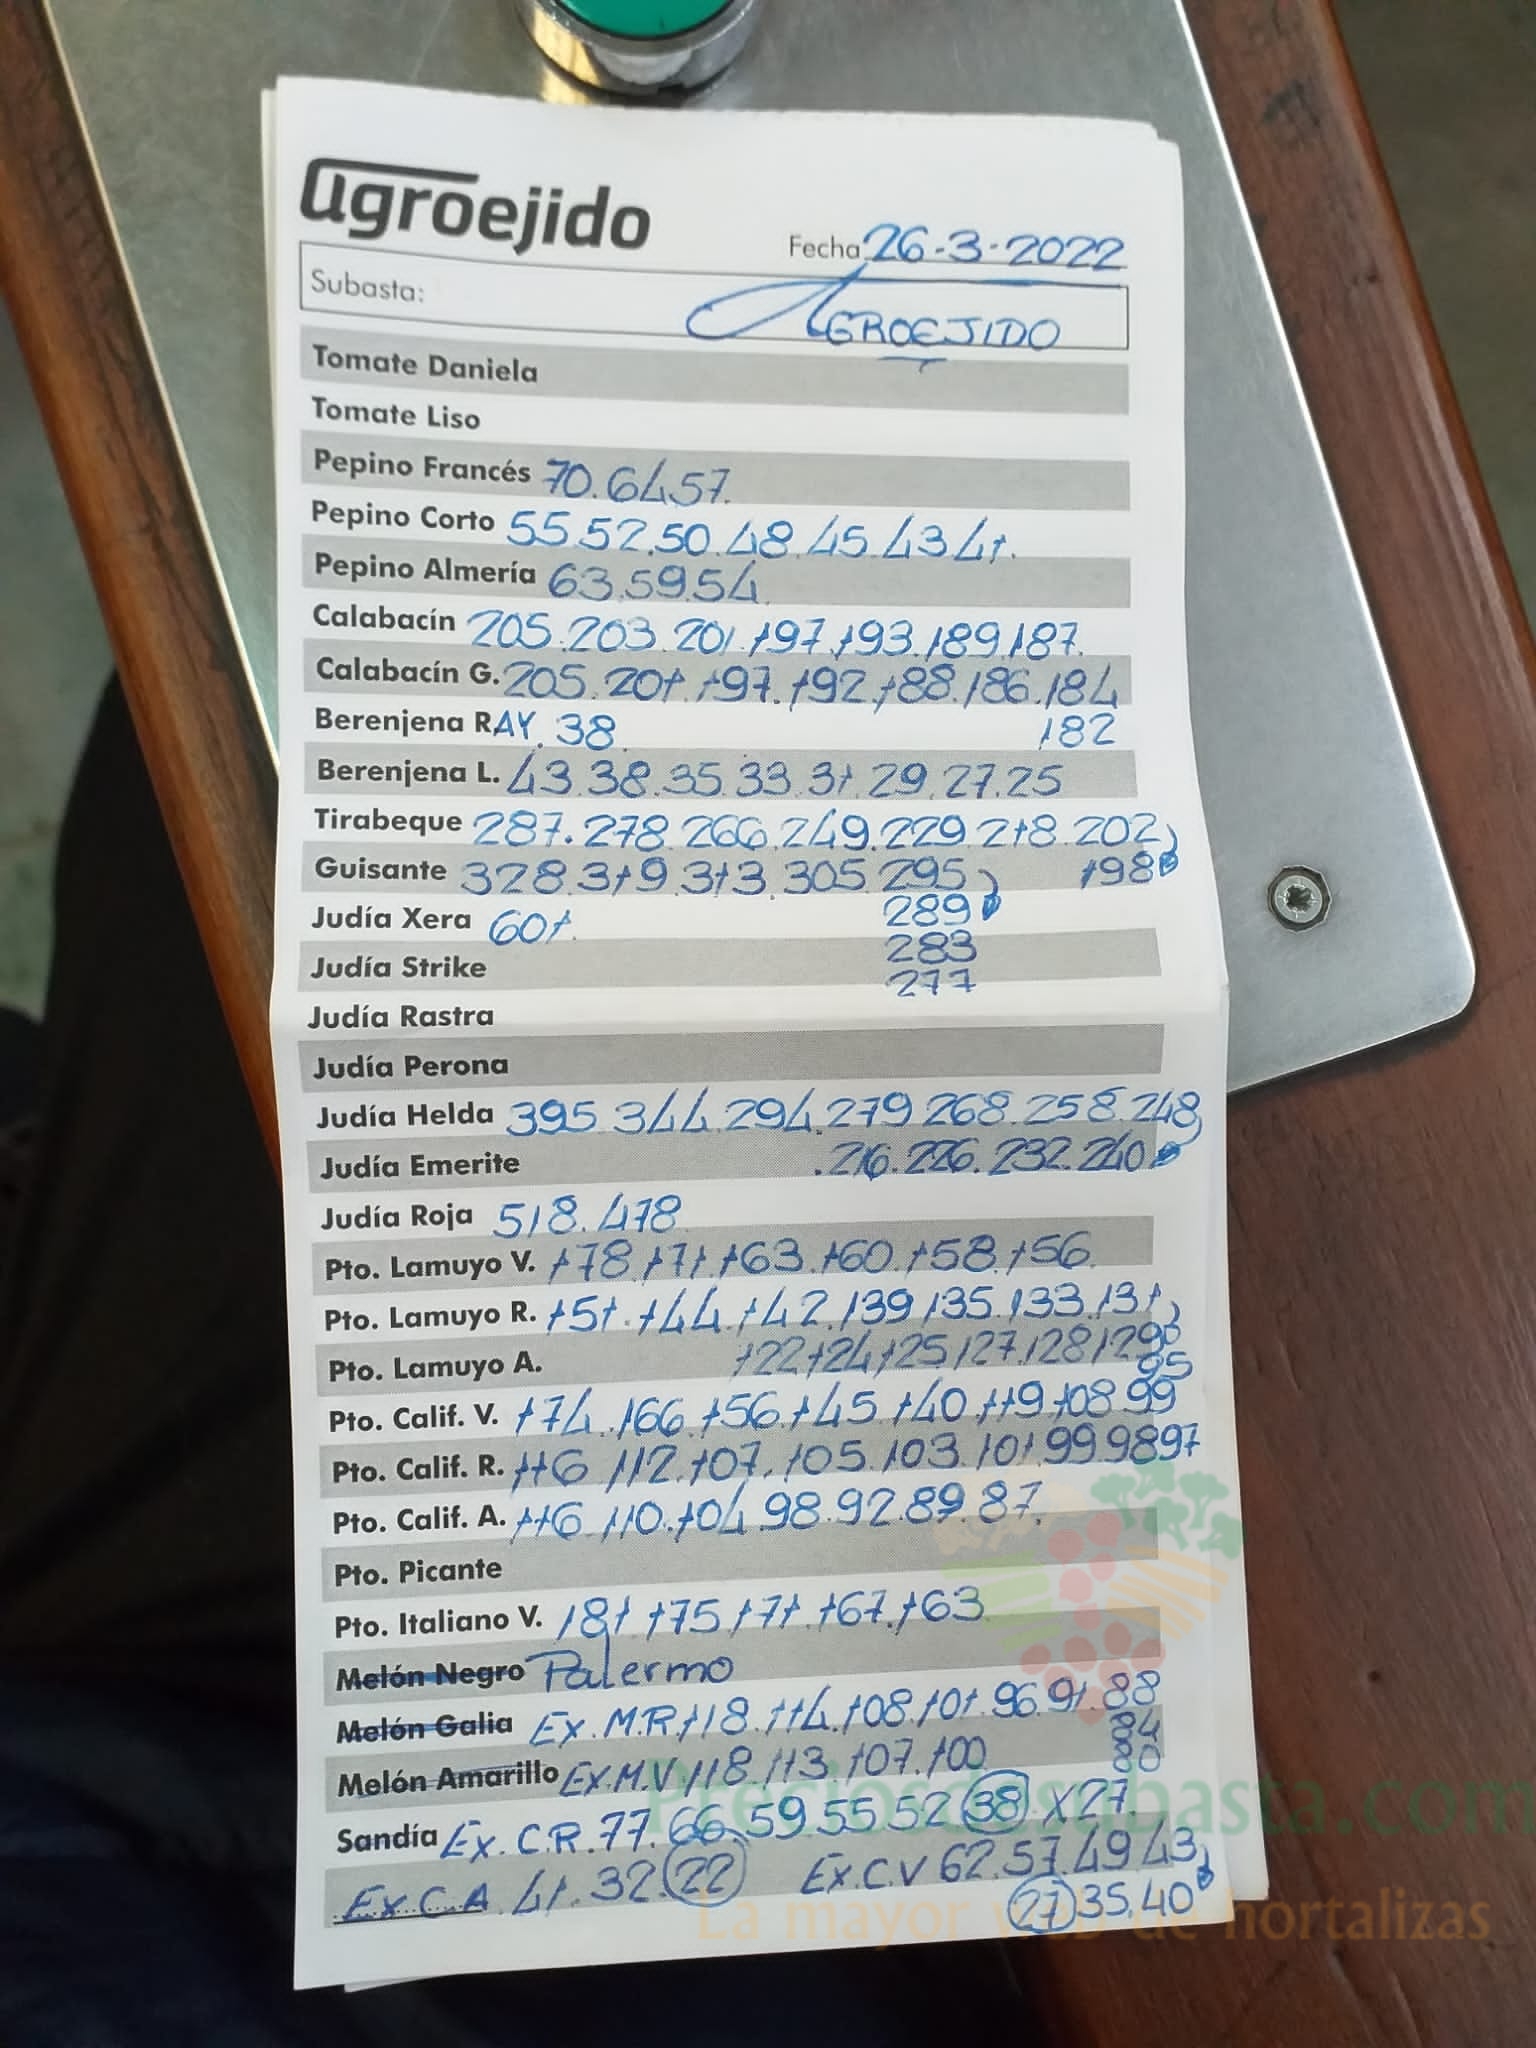 agroejido
Fecha 26-3-2022
Subasta: AGROEJIDO
Tomate Daniela
Tomate Liso
Pepino Francés 70.64.57.
Pepino Corto 55.52.50.48.45.43.41.
Pepino Almería 63.59.54
Calabacín 205.203.201.197.193.189.187.
Calabacín G. 205.201.197.192.188.186.184
182
Berenjena RAY. 38
Berenjena L. 43.38.35.33.31.29.27.25
Tirabeque 287.278.266.249.229.218.202
198
Guisante 328.319.313.305.295
289
283
277
Judía Xera 601.
Judía Strike
Judía Rastra
Judía Perona
Judía Helda 395.344.294.279.268.258.248
.216.226.232.240
Judía Emerite
Judía Roja 518.478
Pto. Lamuyo V. 178.171.163.160.158.156.
Pto. Lamuyo R. 151.144.142.139.135.133.131
122.124.125.127.128.129
Pto. Lamuyo A.
95
Pto. Calif. V. 174.166.156.145.140.119.108.99
Pto. Calif. R. 116.112.107.105.103.101.99.98.97
Pto. Calif. A. 116.110.104.98.92.89.87.
Pto. Picante
Pto. Italiano V. 181.175.171.167.163
Melón Negro Palermo
Melón Galia Ex.M.R.118.114.108.101.96.91.88
84
80
Melón Amarillo Ex.M.V.118.113.107.100
Sandía Ex.C.R.77.66.59.55.52 38 X27.
Ex.C.A .41.32.22 Ex.C.V 62.57.49.43
27 35.40
Preciosdesubasta.com
La mayor web de hortalizas